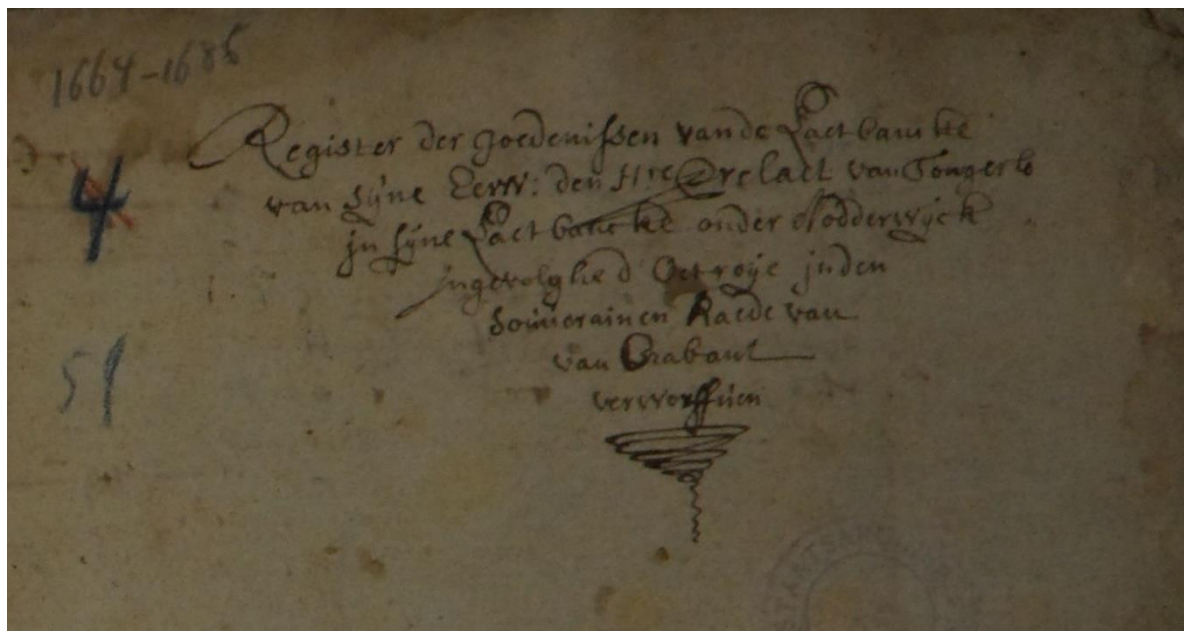 1664-1685
Register der goedenissen vande Laetbancke
van sijne Eerw: den Hre Prelaet van Tongerlo
jn sijne Laetbancke onder Nodderwijck
jngevolghe d'Octroije jnden
Souverainen Raede van
van Brabant
verworffven
4
51